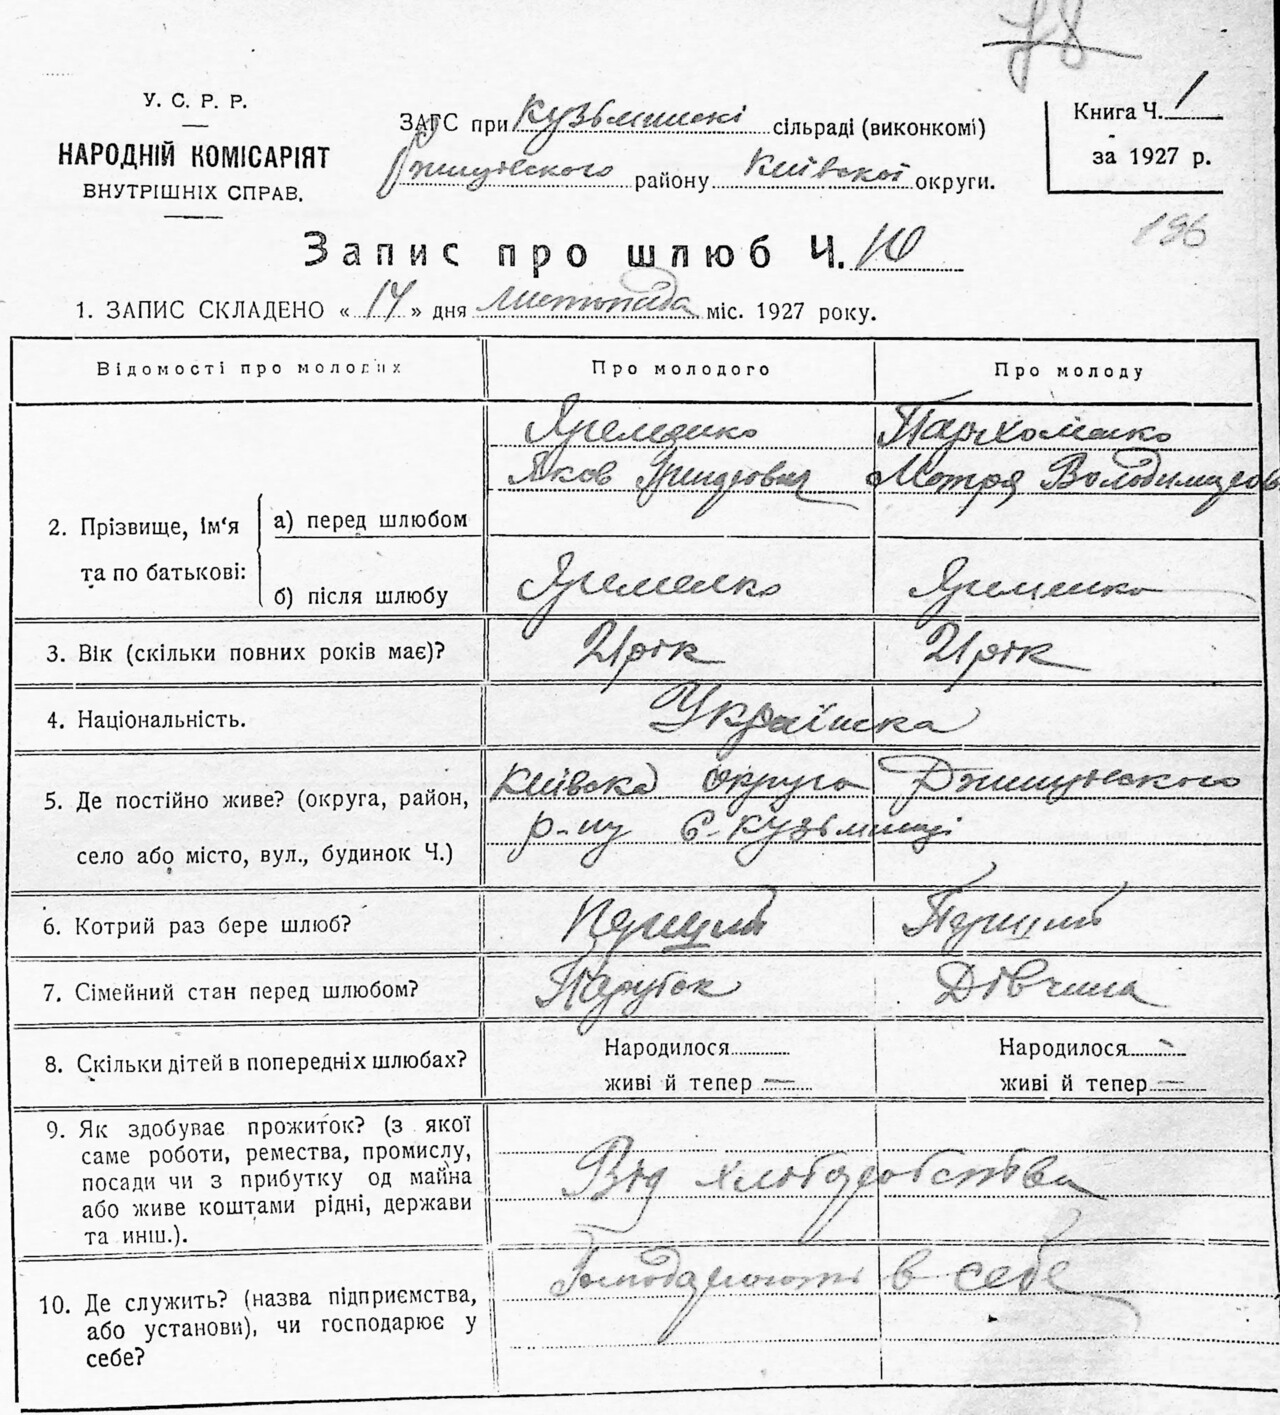 78
У. С. Р. Р.
НАРОДНІЙ КОМІСАРІЯТ
ВНУТРІШНІХ СПРАВ.
ЗАГС при Кузьминскі сільраді (виконкомі)
району Київскої округи.
Книга Ч. 1
за 1927 р.
196
Запис про шлюб Ч. 10
1. ЗАПИС СКЛАДЕНО « 14 » дня листопада міс. 1927 року.
Відомості про молодих
Про молодого
Про молоду
2. Прізвище, ім'я та по батькові:
а) перед шлюбом
Яременко
Яков
Пархоменко
Мотря Володимиров
б) після шлюбу
Яременко
Яременко
3. Вік (скільки повних років має)?
21 рік
21 рік
4. Національність.
Українска
5. Де постійно живе? (округа, район,
село або місто, вул., будинок Ч.)
Київска округа
р-ну с. Кузьминці
6. Котрий раз бере шлюб?
Перший
Перший
7. Сімейний стан перед шлюбом?
Парубок
Дівчина
8. Скільки дітей в попередніх шлюбах?
Народилося
живі й тепер —
Народилося -
живі й тепер —
9. Як здобуває прожиток? (з якої
саме роботи, ремества, промислу,
посади чи з прибутку од майна
або живе коштами рідні, держави
та инш.).
Від хліборобства
10. Де служить? (назва підприємства,
або установи), чи господарює у
себе?
Господарюють в себе